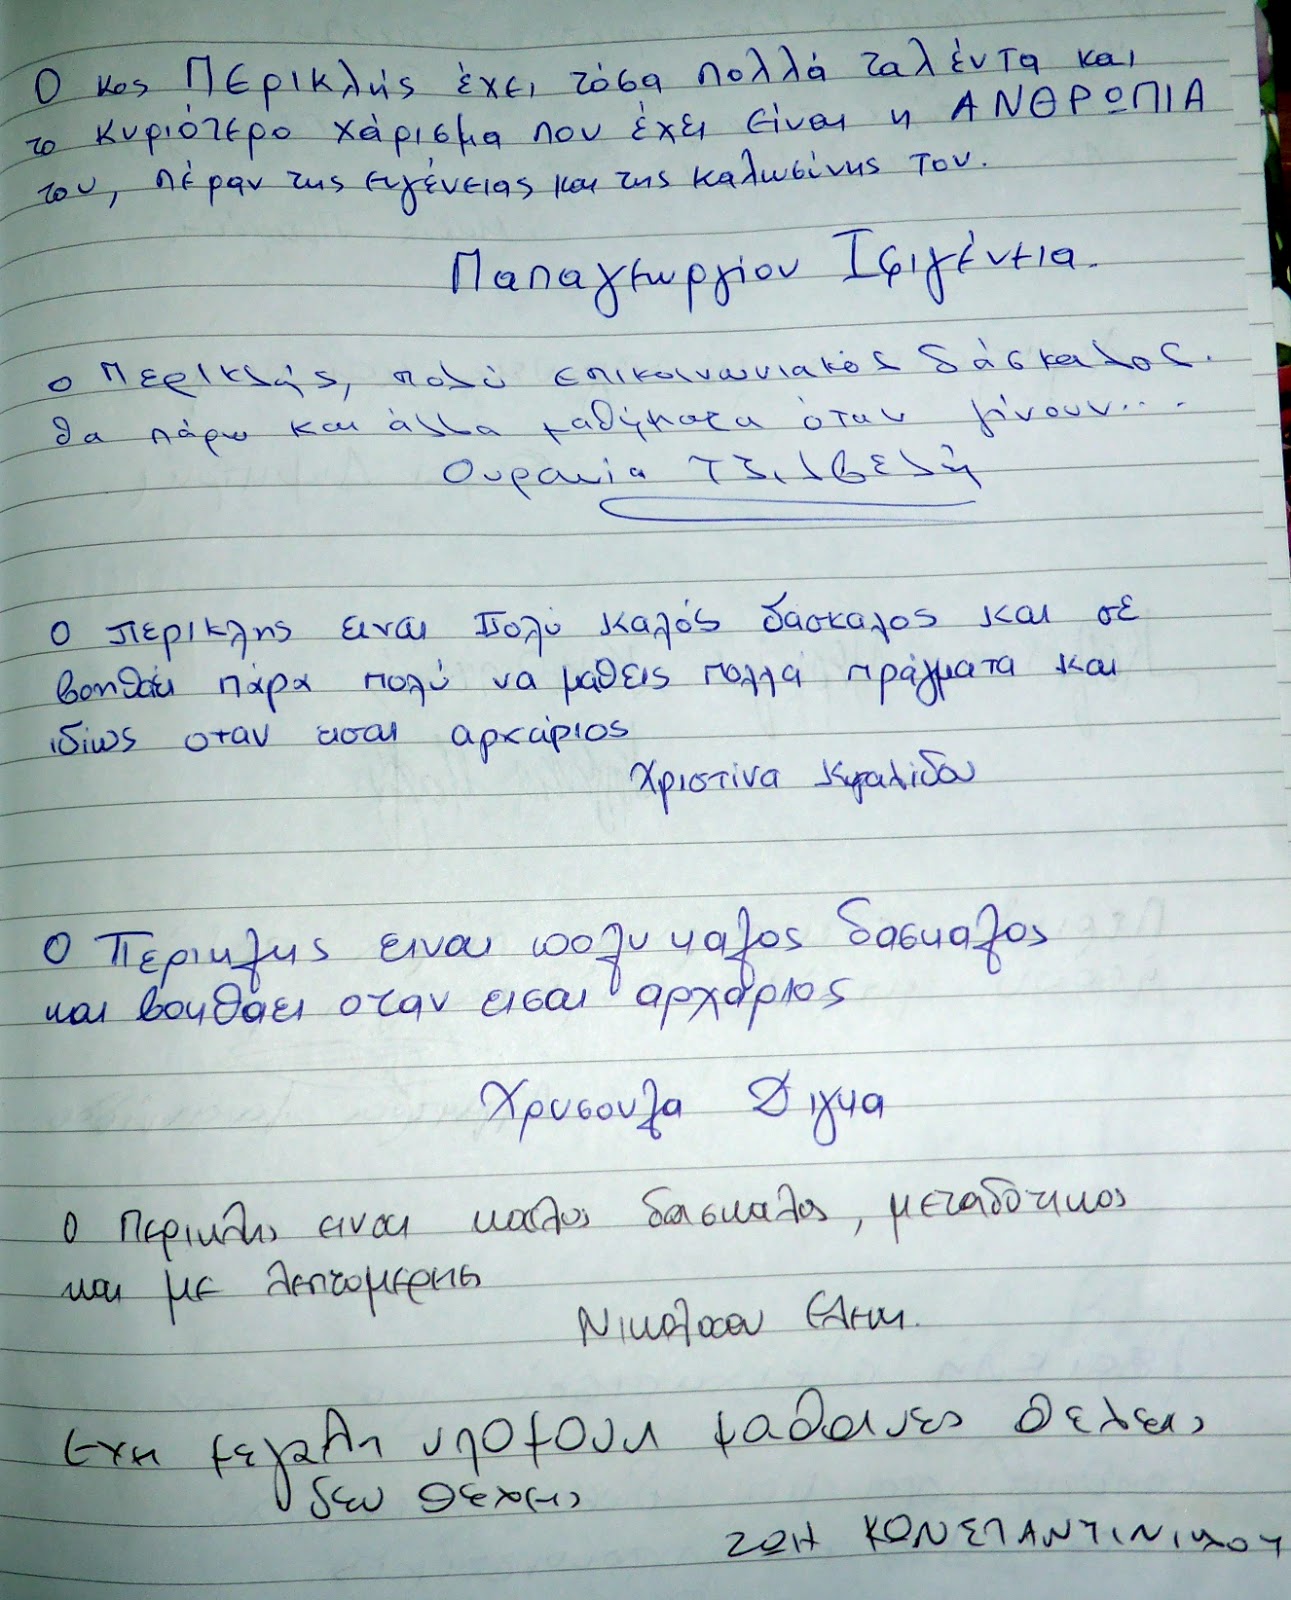 Ο κος Περικλής έχει τόσα πολλά ταλέντα και
το κυριότερο χάρισμα που έχει είναι η ΑΝΘΡΩΠΙΑ
του, πέραν της ευγένειας και της καλωσίνης του.
Παπαγεωργίου Ιφιγένεια.
Ο Περικλής, πολύ επικοινωνιακός δάσκαλος.
θα πάρω και άλλα μαθήματα όταν γίνουν....
Ουρανία Τζιλβελή
Ο περικλης ειναι πολύ καλός δάσκαλος και σε
βοηθάει πάρα πολύ να μαθεις πολλά πράγματα και
ιδίως οταν εισαι αρχάριος
Χριστίνα Κεφαλίδου
Ο Περικλης ειναι πολυ καλος δασκαλος
και βοηθάει οταν εισαι αρχάριος
Χρυσουλα Διγκα
Ο περικλης ειναι καλος δασκαλος, μεταδοτικος
και με λεπτομερης
Νικολαου Ελενη.
Εχει μεγαλη υπομονη μαθαινες θελεις
δεν θελεις
ΖΩΗ ΚΩΝΣΤΑΝΤΙΝΙΔΟΥ